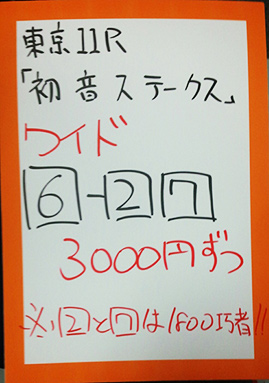 東京11R
「初音ステークス」
ワイド
6-2 7
3000円ずつ
※2と7は1800巧者!!